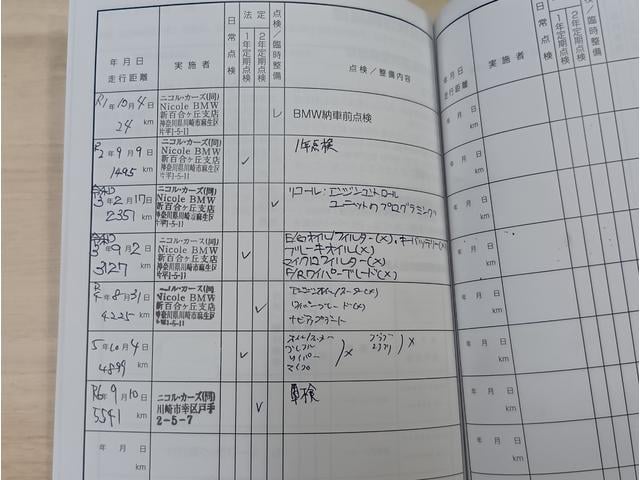 年月日
走行距離
実施者
日常点検
法定
1年定期点検
2年定期点検
点検/臨時整備
点検/整備内容
R1年10月4日
24 km
ニコル・カーズ(同)
Nicole BMW
新百合ヶ丘支店
神奈川県川崎市麻生区
片平1-5-11
レ
BMW納車前点検
R2年9月9日
1495 km
ニコル・カーズ(同)
Nicole BMW
新百合ヶ丘支店
神奈川県川崎市麻生区
片平1-5-11
✓
1年点検
令和
3年2月17日
2351 km
ニコル・カーズ(同)
Nicole BMW
新百合ヶ丘支店
神奈川県川崎市麻生区
片平1-5-11
✓
リコール:エンジンコントロール
ユニットのプログラミング
令和
3年9月2日
3127 km
ニコル・カーズ(同)
Nicole BMW
新百合ヶ丘支店
神奈川県川崎市麻生区
片平1-5-11
✓
E/gオイル/フィルター(×)、キーバッテリー(×)
ブレーキオイル(×)
マイクロフィルター(×)
F/Rワイパーブレード(×)
R4年8月31日
4225 km
ニコル・カーズ(同)
Nicole BMW
新百合ヶ丘支店
神奈川県川崎市麻生区
片平1-5-11
✓
ワイパーブレード(×)
5年10月4日
4899 km
✓
ワイパー
マイクロ
×
×
R6年9月10日
5541 km
ニコル・カーズ(同)
川崎市幸区戸手
2-5-7
✓
車検
年月日
km
年月日
走行距離
実施者
日常点検
1年定期点検
2年定期点検
点検/臨時整備
年月日
km
年月日
km
年月日
km
年月日
km
年月日
km
年月日
km
年月日
km
年月日
km